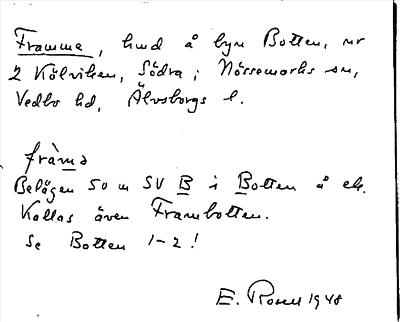 Framme, hmd å byn Botten, nr
2 Kölviken, Södra; Nössemarks sn,
Vedbo hd, Älvsborgs l.
fràmə
Belägen 50 m SV B i Botten å ek.
Kallas även Frambotten.
Se Botten 1-2!
E. Rosell 1948